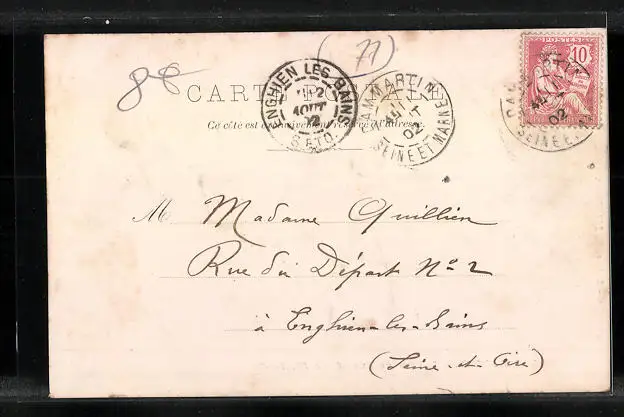 (77)
88
CARTE POSTALE
Ce côté est exclusivement réservé à l'adresse.
ENGHIEN LES BAINS
2
AOUT
02
S. ET O.
DAMMARTIN
AOUT
02
SEINE ET MARNE
POSTES
10
02
SEINE ET
M Madame Quillien
Rue du Départ No 2
à Enghien-les-Bains
(Seine-et-Oise)